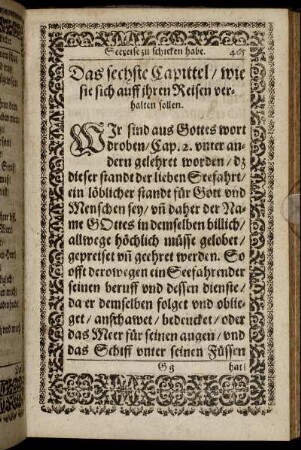 Seereise zu schicken habe.
Das sechste Capittel/ wie
sie sich auff ihren Reisen ver-
halten sollen.
WIr sind aus Gottes wort
droben/ Cap. 2. vnter an-
dern gelehret worden/ dz
dieser standt der lieben Seefahrt/
ein löblicher standt für Gott vnd
Menschen sey/ vñ daher der Na-
me GOttes in demselben billich/
allwege höchlich müsse gelobet/
gepreiset vñ geehret werdẽ. So
offt derowegen ein Seefahrender
seinen beruff vnd dessen dienste/
da er demselben folget vnd oblie-
get/ anschawet/ bedencket/ oder
das Meer für seinen augen/ vnd
das Schiff vnter seinen Füssen
G g hat/